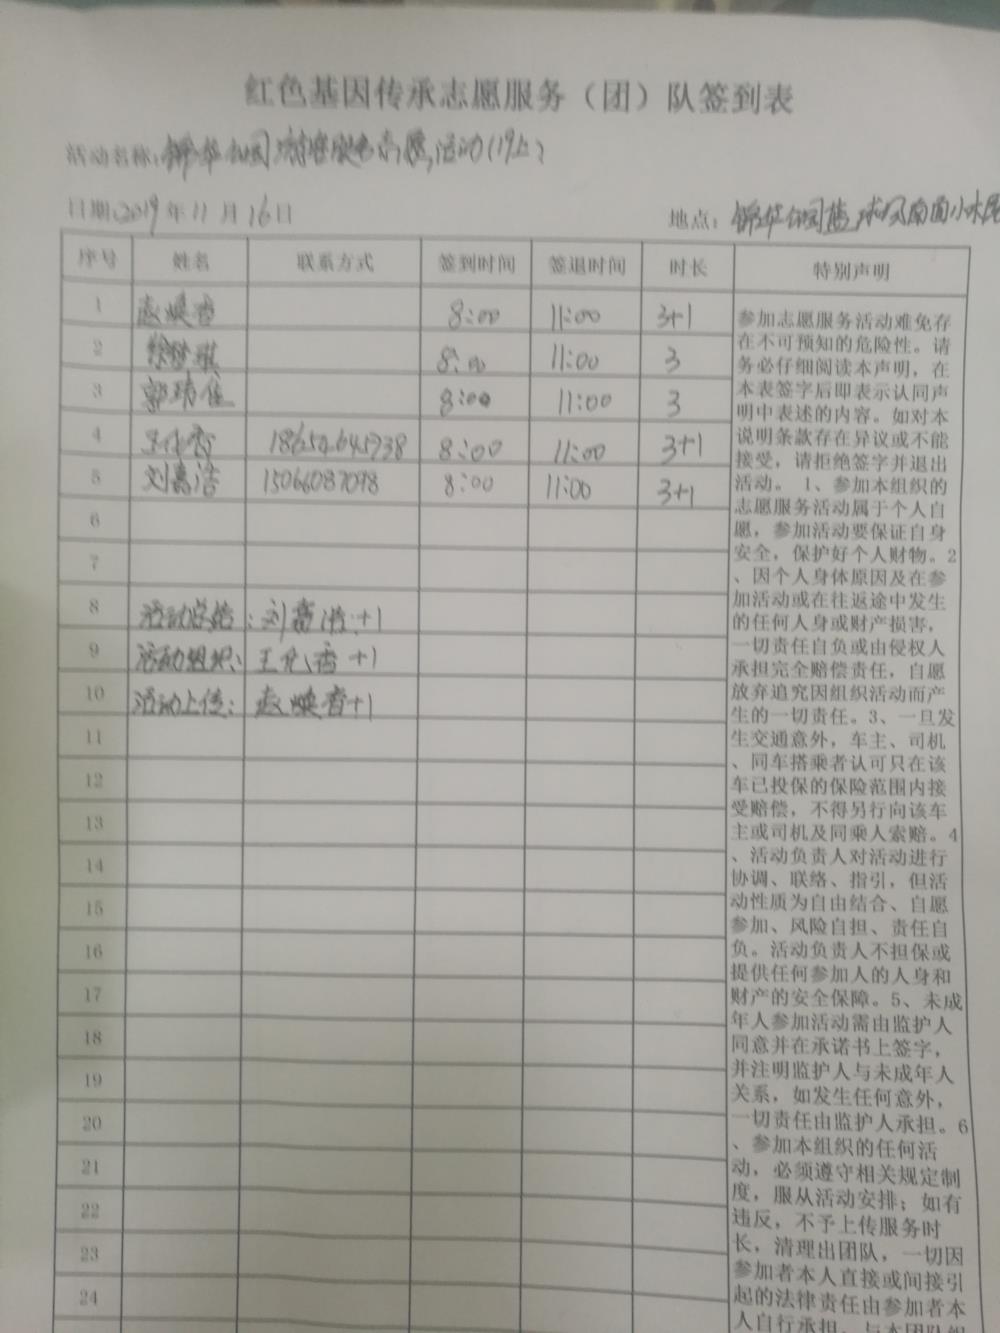 红色基因传承志愿服务（团）队签到表
活动名称：锦华公园 活动(19上)
日期:2019年11月16日
地点：锦华公园 南面小水
序号 姓名 联系方式 签到时间 签退时间 时长 特别声明
1 赵焕香 8:00 11:00 3+1
2 徐梦琪 8:00 11:00 3
3 郭靖佳 8:00 11:00 3
4 8:00 11:00 3+1
5 刘嘉浩 15066087098 8:00 11:00 3+1
6
7
8 活动总结：刘嘉浩+1
9 活动组织：王 香+1
10 活动上传：赵焕香+1
11
12
13
14
15
16
17
18
19
20
21
22
23
24
参加志愿服务活动难免存
在不可预知的危险性。请
务必仔细阅读本声明，在
本表签字后即表示认同声
明中表述的内容。如对本
说明条款存在异议或不能
接受，请拒绝签字并退出
活动。1、参加本组织的
志愿服务活动属于个人自
愿，参加活动要保证自身
安全，保护好个人财物。2
、因个人身体原因及在参
加活动或在往返途中发生
的任何人身或财产损害，
一切责任自负或由侵权人
承担完全赔偿责任，自愿
放弃追究因组织活动而产
生的一切责任。3、一旦发
生交通意外，车主、司机
、同车搭乘者认可只在该
车已投保的保险范围内接
受赔偿，不得另行向该车
主或司机及同乘人索赔。4
、活动负责人对活动进行
协调、联络、指引，但活
动性质为自由结合、自愿
参加、风险自担、责任自
负。活动负责人不担保或
提供任何参加人的人身和
财产的安全保障。5、未成
年人参加活动需由监护人
同意并在承诺书上签字，
并注明监护人与未成年人
关系，如发生任何意外，
一切责任由监护人承担。6
、参加本组织的任何活
动，必须遵守相关规定制
度，服从活动安排；如有
违反，不予上传服务时
长，清理出团队，一切因
参加者本人直接或间接引
起的法律责任由参加者本
人自行承担，与本团队组